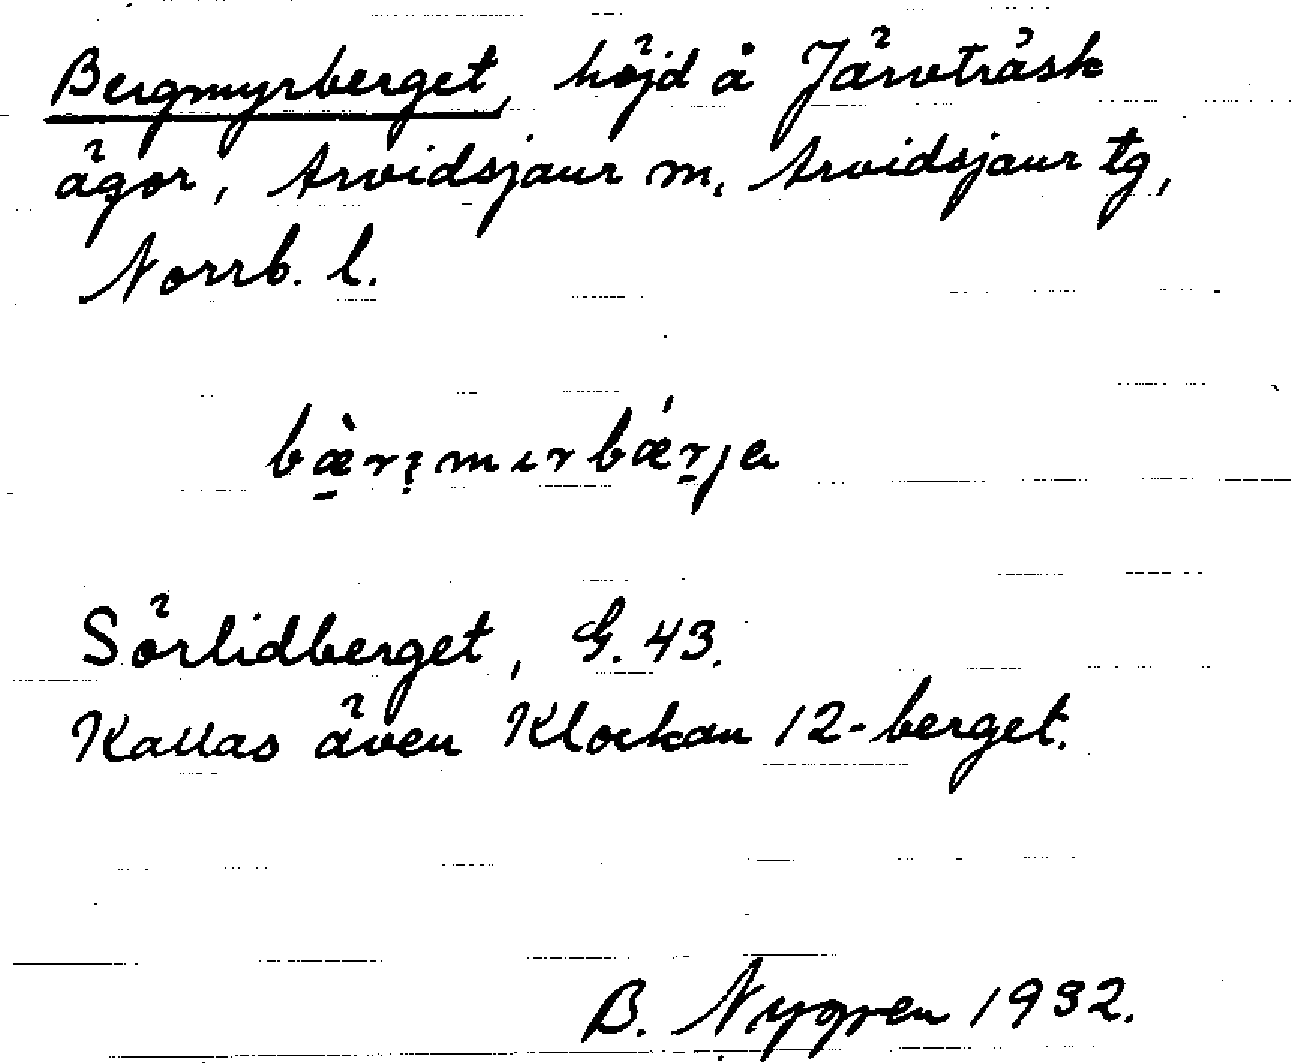 Bergmyrberget, höjd å Järvträsk
ägor, Arvidsjaur m. Arvidsjaur tg,
Norrb. l.
bæ̠̀rᶎmırbǽr̠ja
Sörlidberget, G. 43.
Kallas även Klockan 12-berget.
B. Nygren 1932.